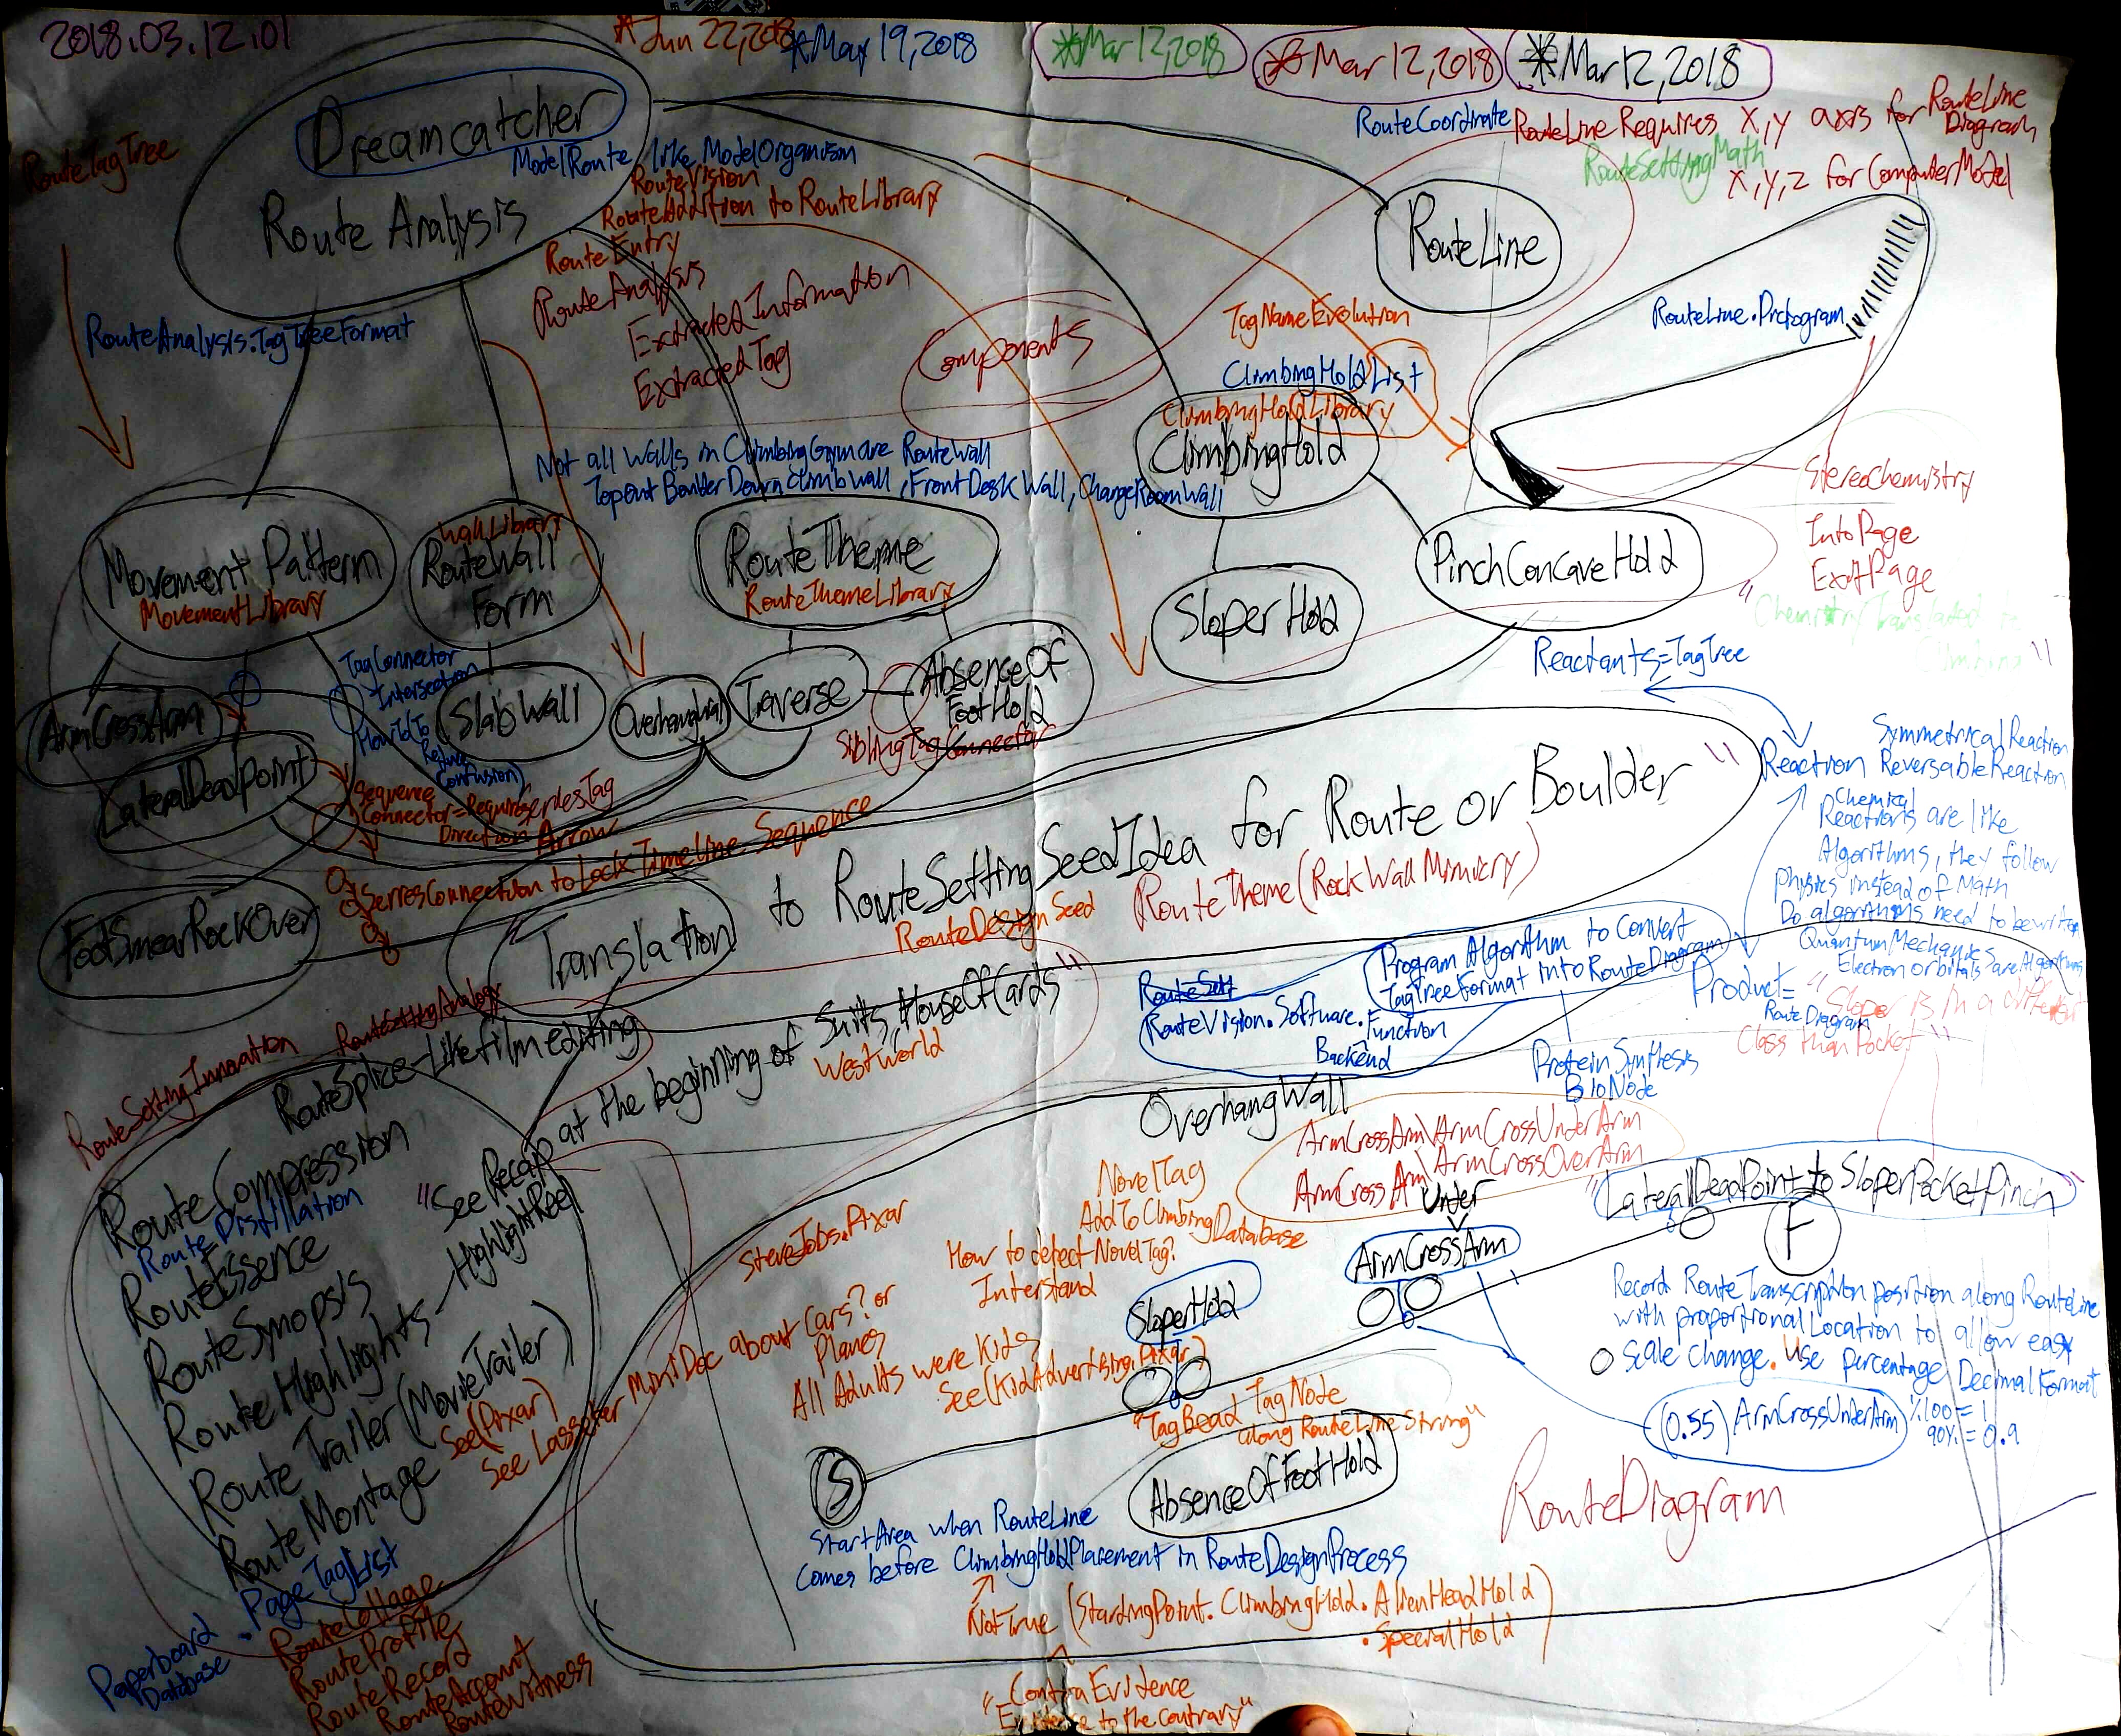 2018.03.12.01
*Jun 22, 2018
*May 19, 2018
*Mar 12, 2018
*Mar 12, 2018
*Mar 12, 2018
RouteTagTree
Dreamcatcher
Route Analysis
ModelRoute, like ModelOrganism
RouteVision
RouteAddition to RouteLibrary
RouteEntry
RouteAnalysis
Extracted Information
ExtractedTag
RouteAnalysis.TagTreeFormat
Components
RouteCoordinate
RouteLine Requires X,Y axis for RouteLine
Diagram
RouteSettingMath
X,Y,Z for ComputerModel
RouteLine
RouteLine.Pictogram
TagNameEvolution
ClimbingHoldList
ClimbingHoldLibrary
ClimbingHold
Not all Walls in ClimbingGym are RouteWall
Topout Boulder DownClimbWall, FrontDeskWall, ChangeRoomWall
StereoChemistry
IntoPage
ExitPage
Movement Pattern
MovementLibrary
WallLibrary
RouteWall
Form
RouteTheme
RouteThemeLibrary
SloperHold
PinchConcaveHold
"Chemistry Translated to
Climbing"
TagConnector
Intersection
How To
Reduce
Confusion)
ArmCrossArm
LateralDeadPoint
SlabWall
OverhangWall
Traverse
AbsenceOf
FootHold
SiblingTagConnector
Reactants=TagTree
Sequence
Connector=Requires SeriesTag
Direction Arrow
SeriesConnection to Lock TimeLine Sequence
FootSmearRockOver
Translation
to RouteSettingSeedIdea for Route or Boulder"
RouteDesign Seed
RouteTheme(RockWallMimicry)
Symmetrical Reaction
Reaction ReversableReaction
Chemical
Reactions are like
Algorithms, they follow
physics instead of Math
Do algorithms need to be written
QuantumMechanics
Electron orbitals are Algorithms
Program Algorithm to Convert
TagTreeFormat into RouteDiagram
RouteSett
RouteVision.Software.Function
Backend
Product=
RouteDiagram
"Sloper is in a different
Class than Pocket"
Protein Synthesis
BioNode
RouteSettingInnovation
RouteSettingAnalogy
RouteSplice-Like film editing
"See Recap at the beginning of Suits, HouseOfCards"
Westworld
HighlightReel
Route Compression
Route Distillation
RouteEssence
RouteSynopsis
Route Highlights
Route Trailer (MovieTrailer)
See(Pixar)
Route Montage
See Lasseter MiniDoc about Cars? or
Planes
SteveJobs.Pixar
All Adults were Kids
See(KidAdvertising.Pixar)
.PageTagList
Paperboard
Database
RouteCollage
RouteProfile
RouteRecord
RouteAccount
RouteWitness
OverhangWall
ArmCrossArm\ArmCrossUnderArm
ArmCrossArm\ArmCrossOverArm
Under
ArmCrossArm
NovelTag
AddTo ClimbingDatabase
How to detect NovelTag?
Interstand
SloperHold
"LateralDeadPoint to SloperPocketPinch"
F
Record RouteTranscription position along RouteLine
with proportional Location to allow easy
Scale change. Use percentage Decimal Format
%100 = 1
90% = 0.9
(0.55) ArmCrossUnderArm
"TagBead TagNode
along RouteLine String"
AbsenceOfFootHold
S
RouteDiagram
StartArea when RouteLine
comes before ClimbingHoldPlacement in RouteDesignProcess
NotTrue (StartingPoint.ClimbingHold.AlienHeadHold
.SpecialHold)
"ContraEvidence
Evidence to the contrary"